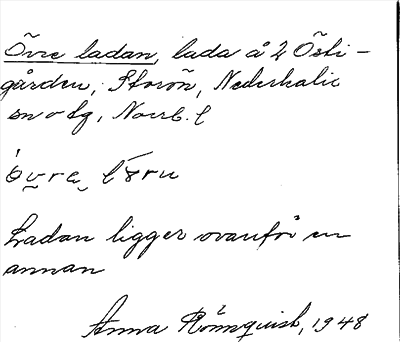 Övre ladan, lada å 2 Östi-
gården, Storön, Nederkalix
sn o tg, Norrb. l
Ladan ligger ovanför en
annan
Anna Rönnquist, 1948